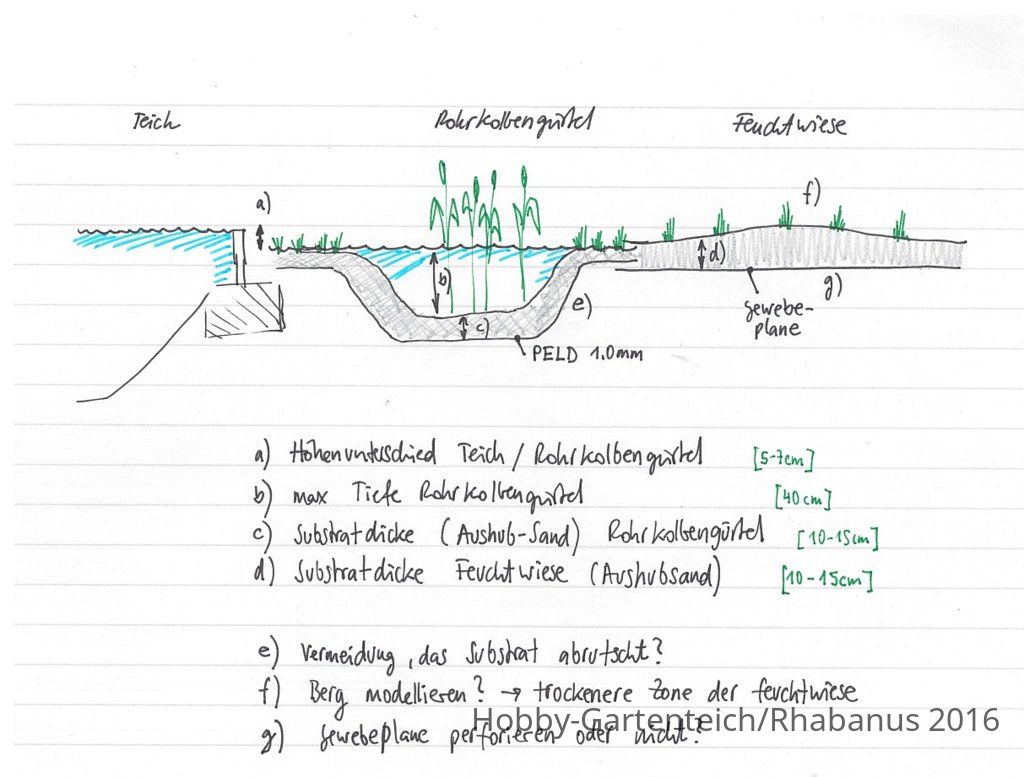 Teich Rohrkolbengürtel Feuchtwiese
a)
f)
b)
d)
g)
e)
c)
Gewebe-
plane
PELD 1.0mm
a) Höhenunterschied Teich / Rohrkolbengürtel [5-7cm]
b) max Tiefe Rohrkolbengürtel [40cm]
c) Substratdicke (Aushub-Sand) Rohrkolbengürtel [10-15cm]
d) Substratdicke Feuchtwiese (Aushubsand) [10-15cm]
e) Vermeidung, das Substrat abrutscht?
f) Berg modellieren? → trockenere Zone der Feuchtwiese
g) Gewebeplane perforieren oder nicht?
Hobby-Gartenteich/Rhabanus 2016